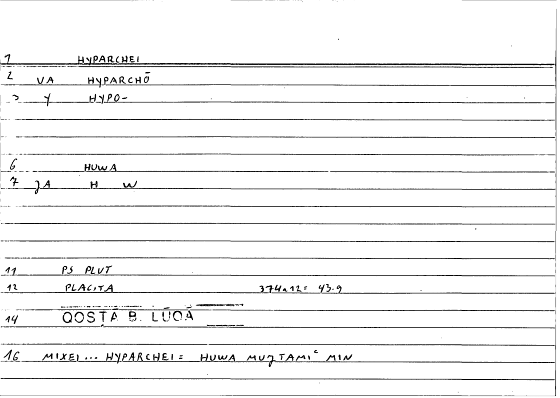 1 HYPARCHEI
2 VA HYPARCHŌ
3 Y HYPO-
6 HUWA
7 JA H W
11 PS PLUT
12 PLACITA 374a12 = 43.9
14 QOSṬĀ B. LŪQĀ
16 MIXEI... HYPARCHEI = HUWA MUJTAMIʿ MIN